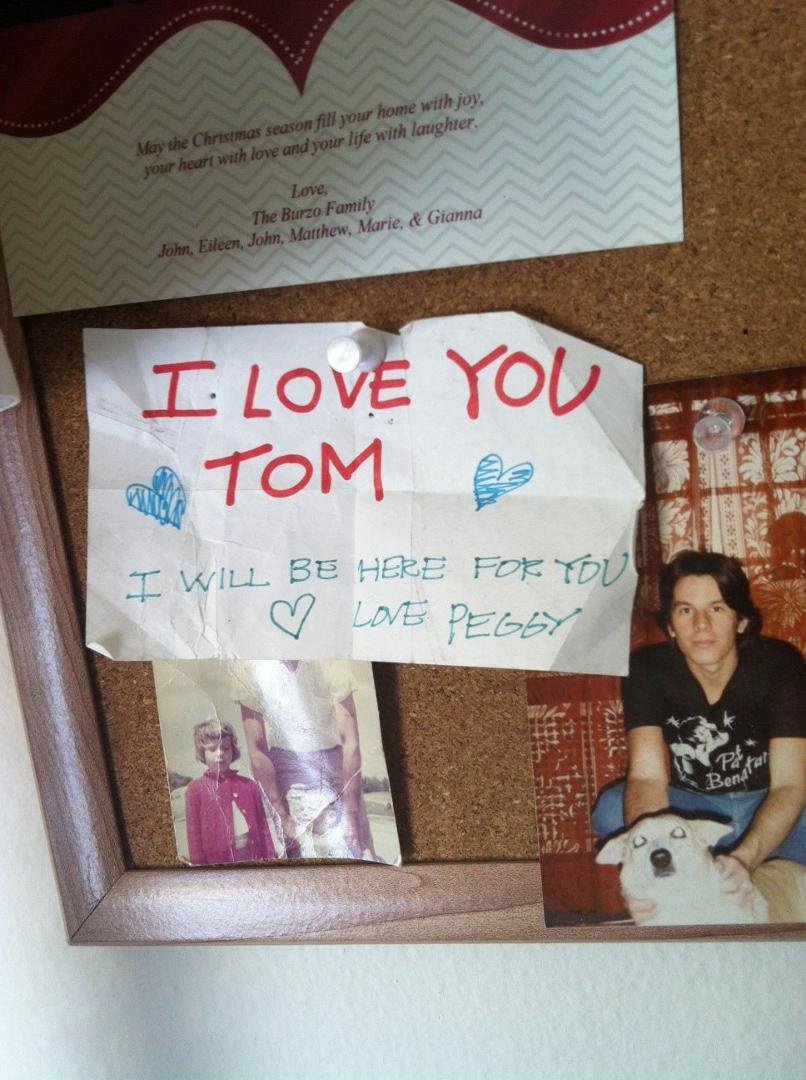 May the Christmas season fill your home with joy,
your heart with love and your life with laughter.
Love,
The Burzo Family
John, Eileen, John, Matthew, Marie, & Gianna
I LOVE YOU
TOM
I WILL BE HERE FOR YOU
LOVE PEGGY
Pat
Benatar